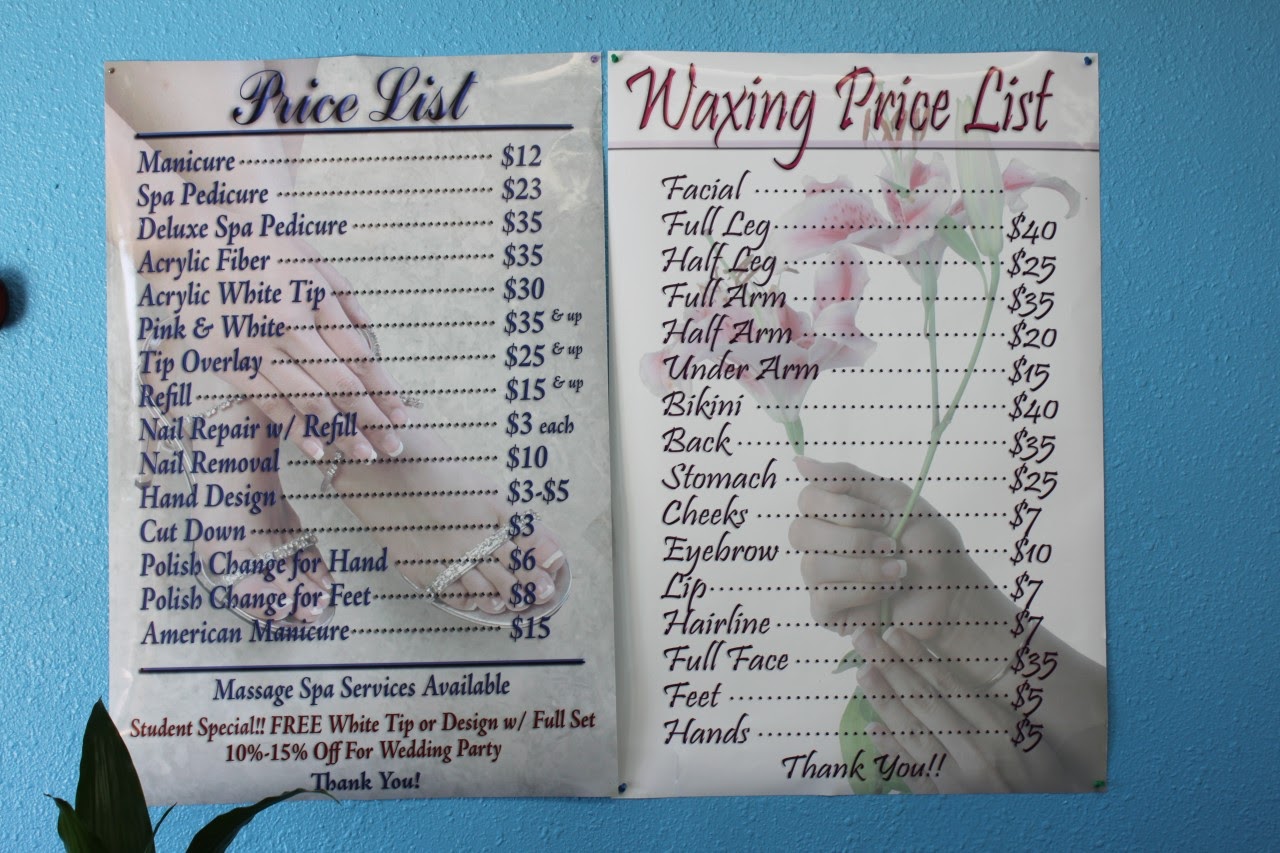 Price List
Manicure $12
Spa Pedicure $23
Deluxe Spa Pedicure $35
Acrylic Fiber $35
Acrylic White Tip $30
Pink & White $35 & up
Tip Overlay $25 & up
Refill $15 & up
Nail Repair w/ Refill $3 each
Nail Removal $10
Hand Design $3-$5
Cut Down $3
Polish Change for Hand $6
Polish Change for Feet $8
American Manicure $15
Massage Spa Services Available
Student Special!! FREE White Tip or Design w/ Full Set
10%-15% Off For Wedding Party
Thank You!
Waxing Price List
Facial
Full Leg $40
Half Leg $25
Full Arm $35
Half Arm $20
Under Arm $15
Bikini $40
Back $35
Stomach $25
Cheeks $7
Eyebrow $10
Lip $7
Hairline $7
Full Face $35
Feet $5
Hands $5
Thank You!!